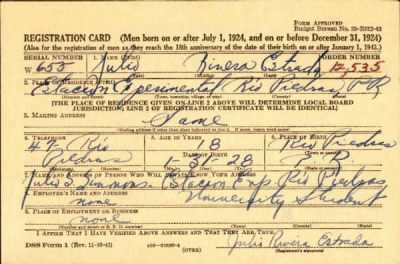 FORM APPROVED
Budget Bureau No. 33-R013-42
REGISTRATION CARD (Men born on or after July 1, 1924, and on or before December 31, 1924)
(Also for the registration of men as they reach the 18th anniversary of the date of their birth on or after January 1, 1943.)
SERIAL NUMBER 1. NAME ORDER NUMBER
W 655 Julio Rivera Estrada 12,535
Estacion Experimental Rio Piedras P R
(Town, township, village, or city) (County) (State)
[THE PLACE OF RESIDENCE GIVEN ON LINE 2 ABOVE WILL DETERMINE LOCAL BOARD
JURISDICTION; LINE 2 OF REGISTRATION CERTIFICATE WILL BE IDENTICAL]
3. MAILING ADDRESS
Same
4. TELEPHONE 5. AGE IN YEARS 6. PLACE OF BIRTH
47 Rio 18 Rio Piedras
Piedras DATE OF BIRTH
1-31-28 P. R.
7. NAME AND ADDRESS OF PERSON WHO WILL ALWAYS KNOW YOUR ADDRESS
Julio S. Simmons Estacion Exp Rio Piedras
8. EMPLOYER'S NAME AND ADDRESS
none University Student
9. PLACE OF EMPLOYMENT OR BUSINESS
none
I AFFIRM THAT I HAVE VERIFIED ABOVE ANSWERS AND THAT THEY ARE TRUE.
DSS Form 1 (Rev. 11-16-42) (OVER) Julio Rivera Estrada